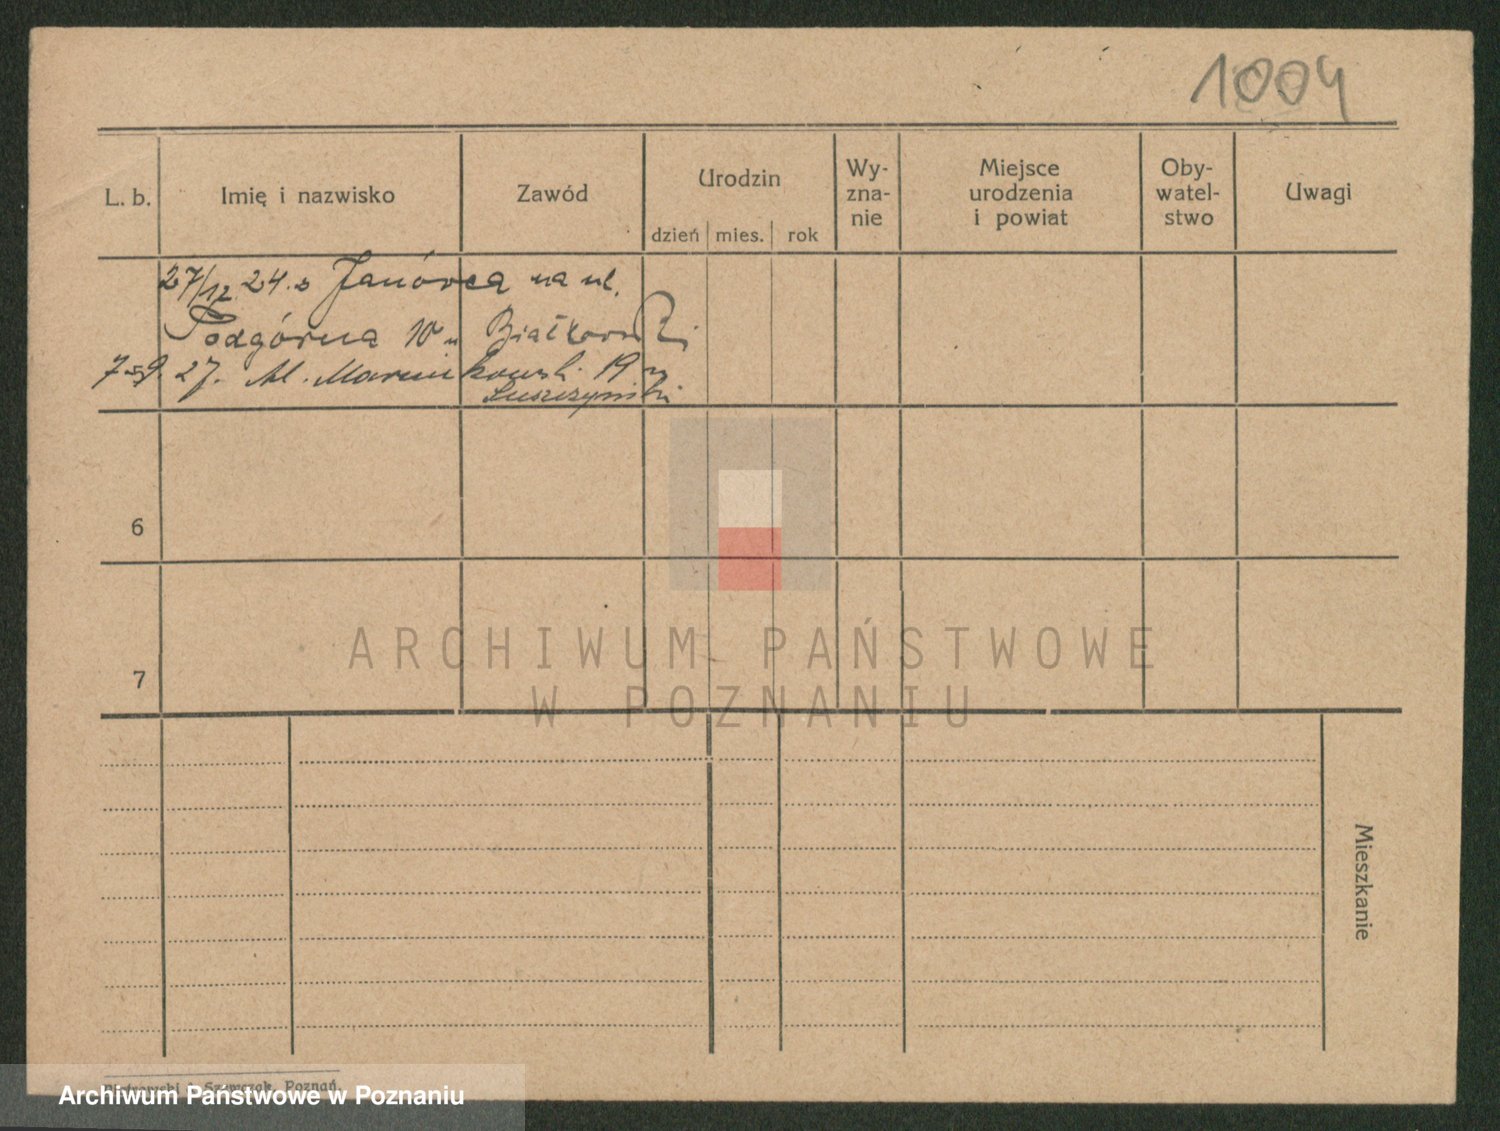 1004
L. b.
Imię i nazwisko
Zawód
Urodzin
dzień
mies.
rok
Wy-
zna-
nie
Miejsce
urodzenia
i powiat
Oby-
watel-
stwo
Uwagi
27/12. 24. z Janówca na ul.
Podgórna 10 u Białkowski
7-9. 27. Al. Marcinkowski 19 u
6
7
ARCHIWUM PAŃSTWOWE
W POZNANIU
Mieszkanie
Piotrowski i Szewczak, Poznań.
Archiwum Państwowe w Poznaniu